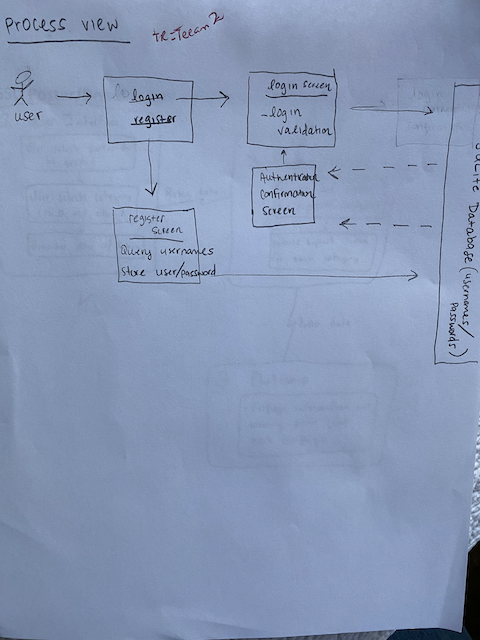 Process view
TR-Team 2
user
login
register
login screen
-login
validation
Authentication
Confirmation
Screen
register
screen
Query usernames
Store user/password
SQLite Database (usernames/
passwords)